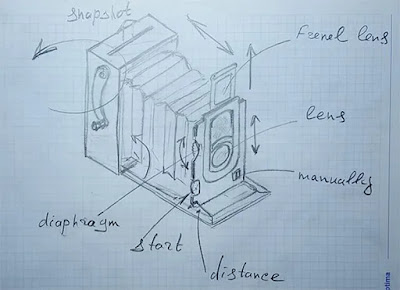 snapshot
Frenel lens
lens
manually
diaphragm
start
distance
optima